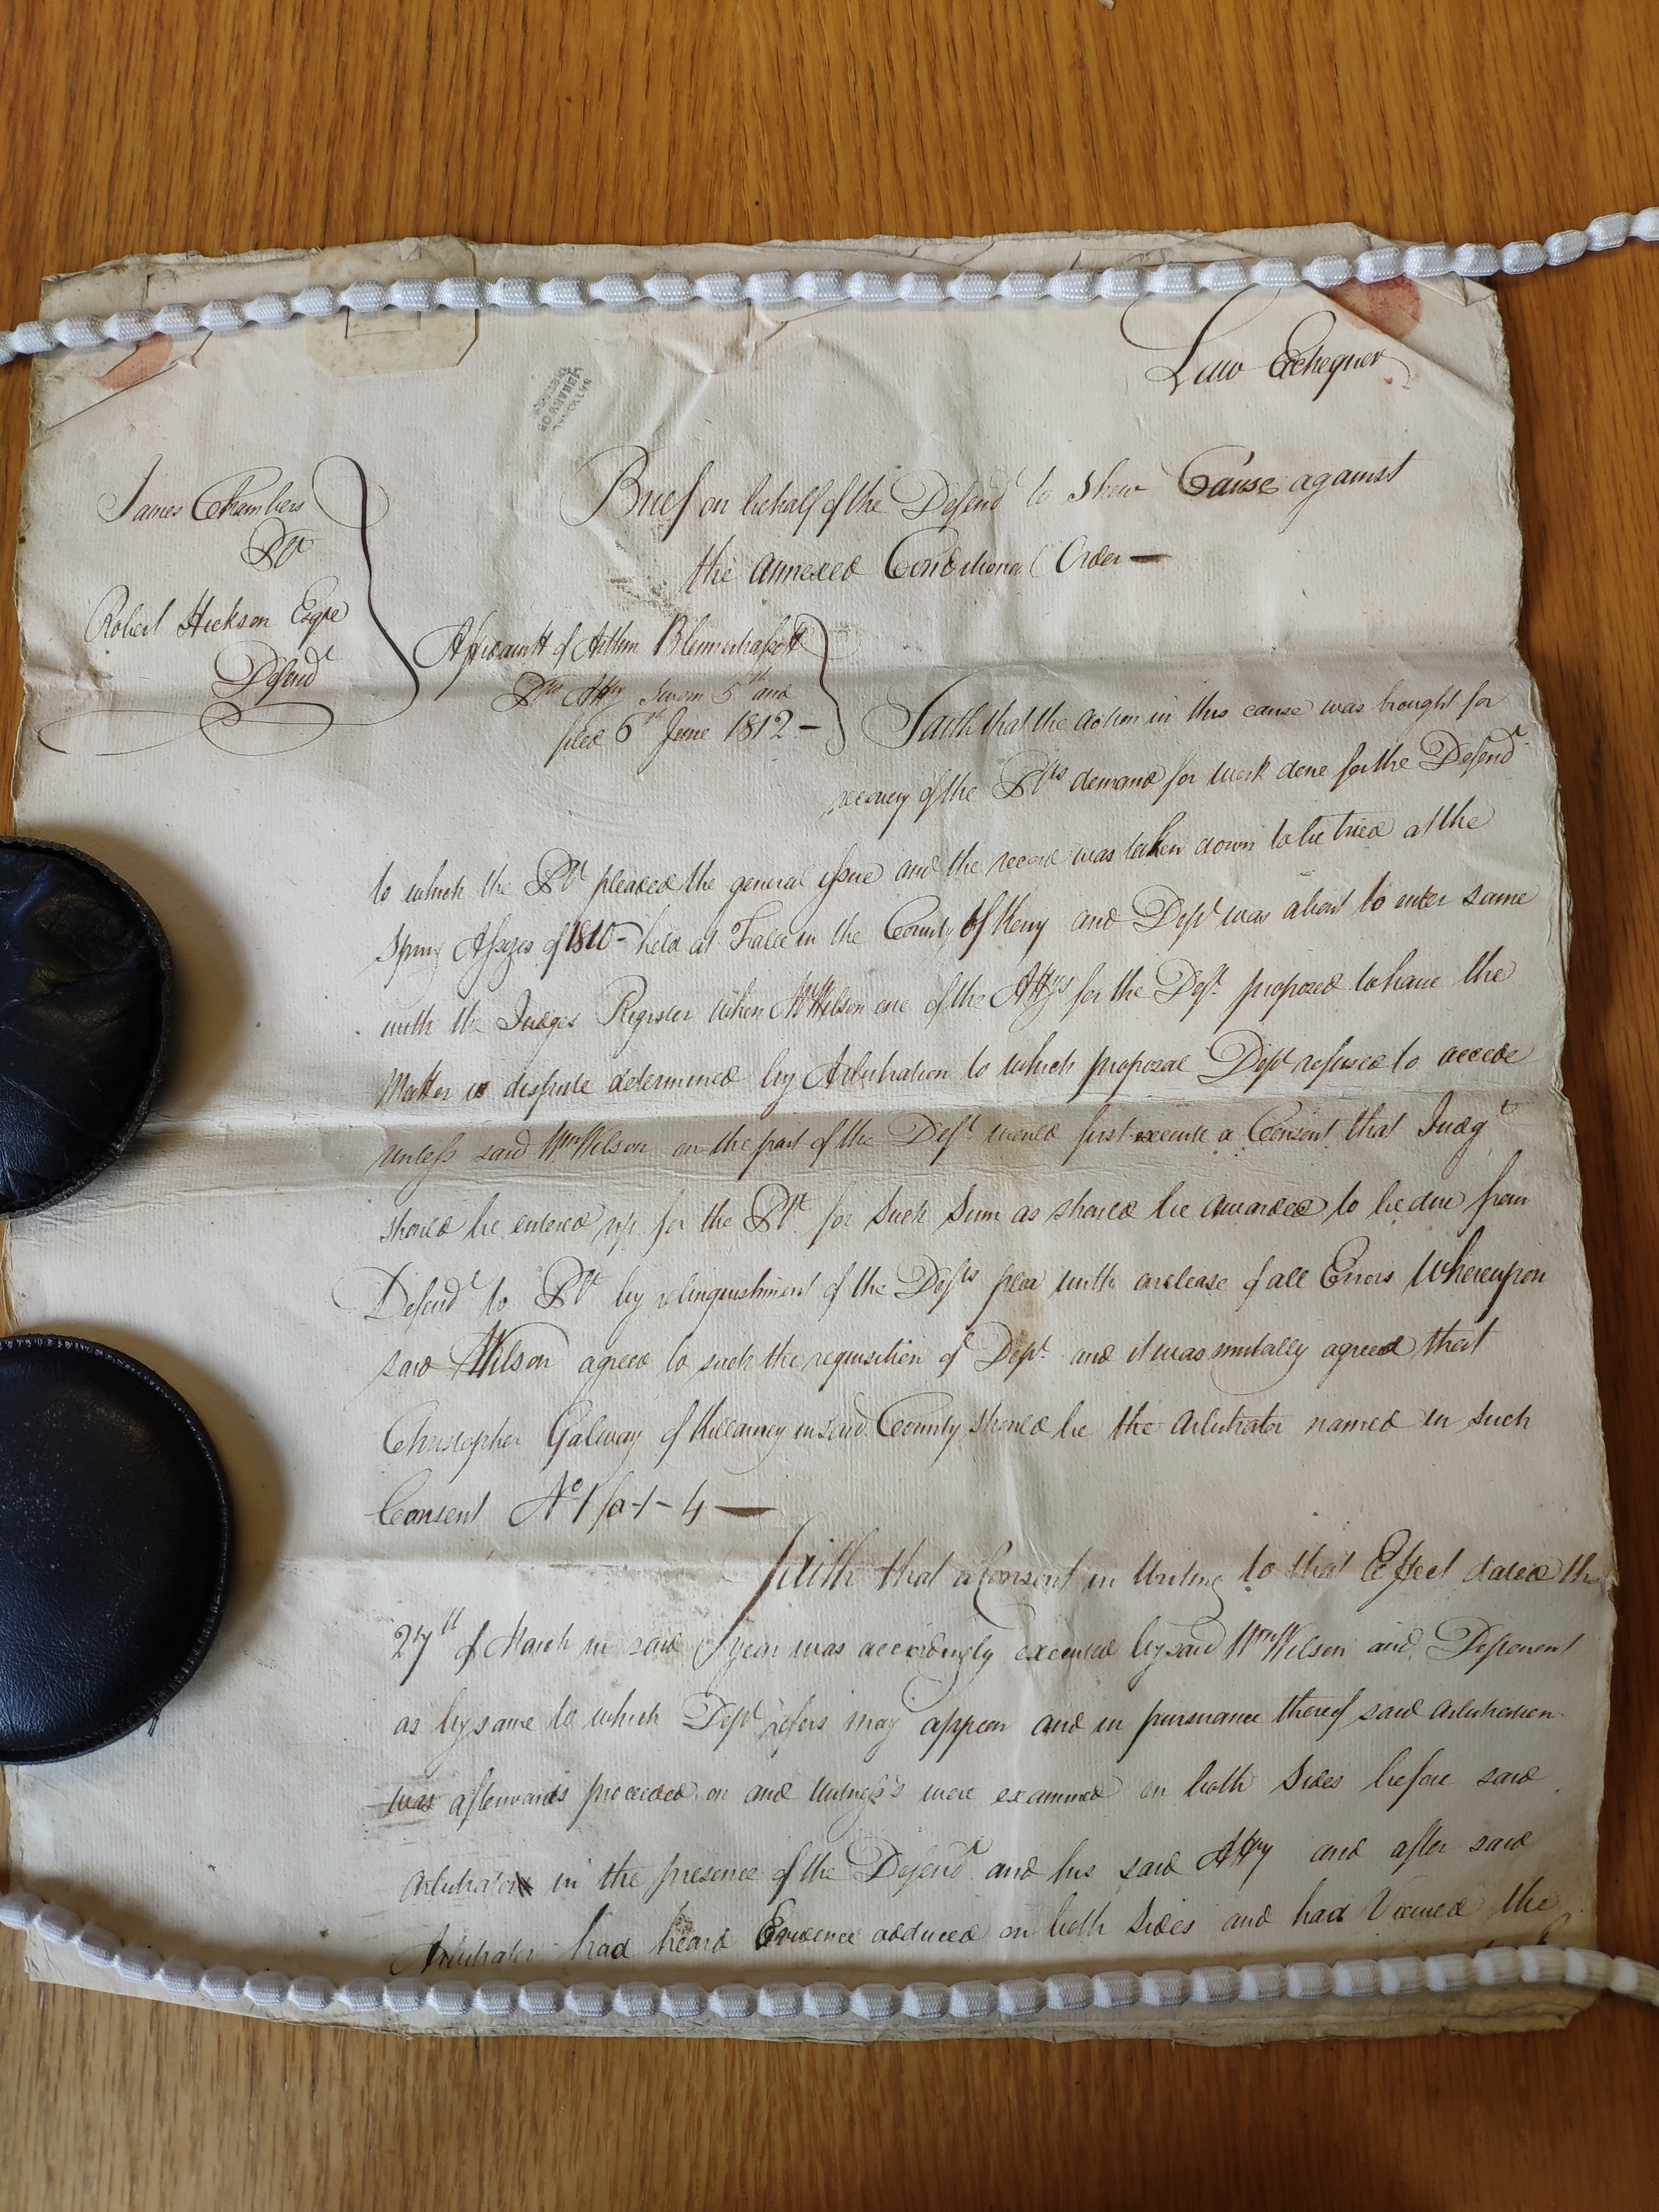 Law Exchequer
NATIONAL
LIBRARY OF
IRELAND
James Chambers
Plt
Robert Hickson Esqre
Defendt
Brief on behalf of the Defendt to Shew Cause against
the annexed Conditional Order —
Affidavitt of Arthur Blennerhassett
Plts Atty Sworn 5th and
filed 6th June 1812 —
Saith that the action in this cause was brought for
recovery of the Plts demand for work done for the Defendt
to which the Plt pleaded the general issue and the record was taken down to be tried at the
Spring Assizes of 1810 - held at Tralee in the County of Kerry and Dept was about to enter same
with the Judges Register when Wm Wilson one of the Attys for the Deft proposed to have the
Matter in dispute determined by Arbitration to which proposal Dept refused to accede
unless said Wm Wilson on the part of the Deft would first execute a Consent that Judgt
should be entered up for the Plt for Such Sum as should be awarded to be due from
Defendt to Plt by relinquishment of the Defts plea with a release of all Errors Whereupon
said Wilson agreed to such the requisition of Dept and it was mutally agreed that
Christopher Galway of Killarney in said County should be the arbitrator named in such
Consent No 1 fo-1-4 —
Saith that a Consent in Writing to that Effect dated the
27th of March in said year was accordingly executed by said Wm Wilson and Deponent
as by same to which Dept refers may appear and in pursuance thereof said arbitration
was afterwards proceeded on and witness's were examined on both Sides before said
Arbitrator in the presence of the Defendt and his said Atty and after said
Arbitrator had heard Evidence adduced on both Sides and had Viewed the